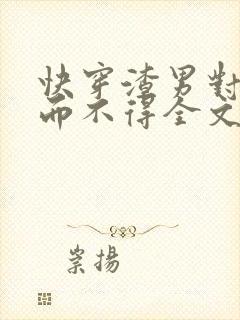 快穿渣男對
而不得全文
崇揚